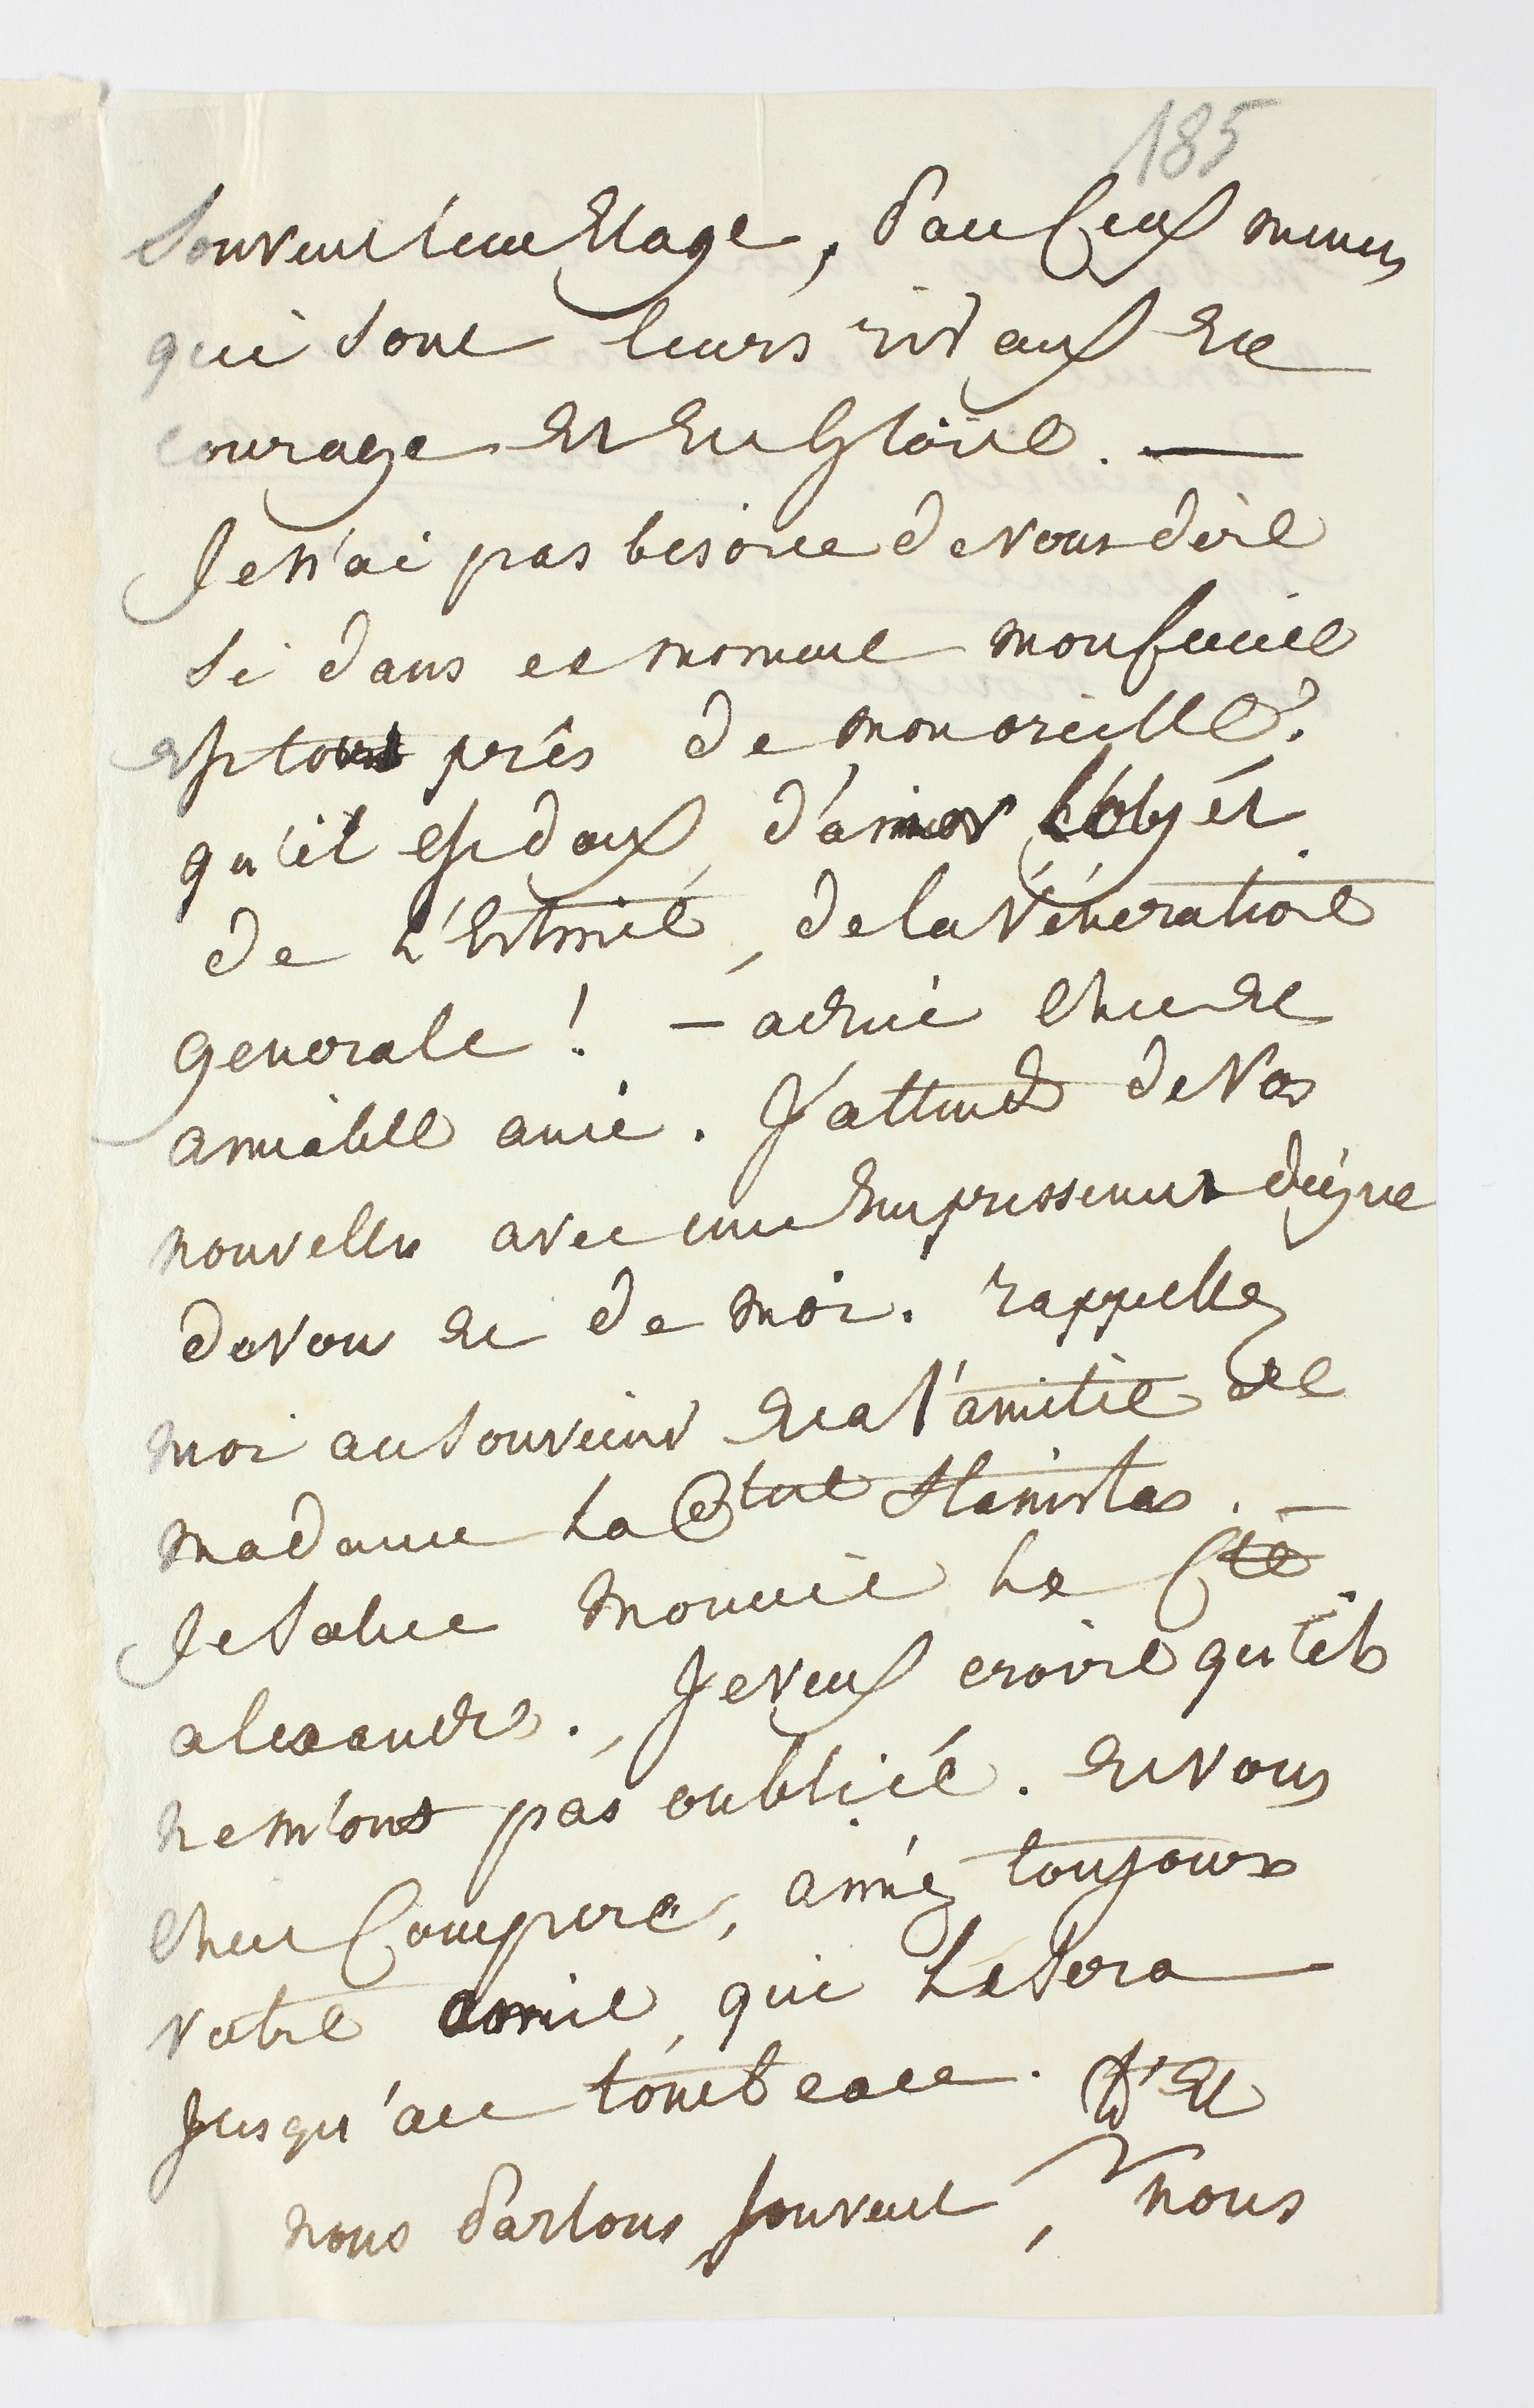 185
Souvent leur Eloge, par Ceux mêmes
qui sont leurs rivaux en
courage et en Gloire. —
Je n'ai pas besoin de vous dire
si dans ce moment mon Coeur
est tout près de mon oreille.
qu'il est doux, d'aimer L'objet
de L'Estime, de la Vénération
generale ! — adieu cher et
aimable ami. J'attends de Vos
nouvelles avec un Empressement digne
de vous et de moi. rappellez
moi au Souvenir et a l'amitié de
madame La Ctesse Stanislas. —
Je Salue mon ami Le Cte
alexandre. Je veux croire qu'ils
ne m'ont pas oublié. et vous
cher Compere, aimez toujours
votre amie, qui Le Sera
Jusqu'au tombeau.
nous Parlons souvent, nous